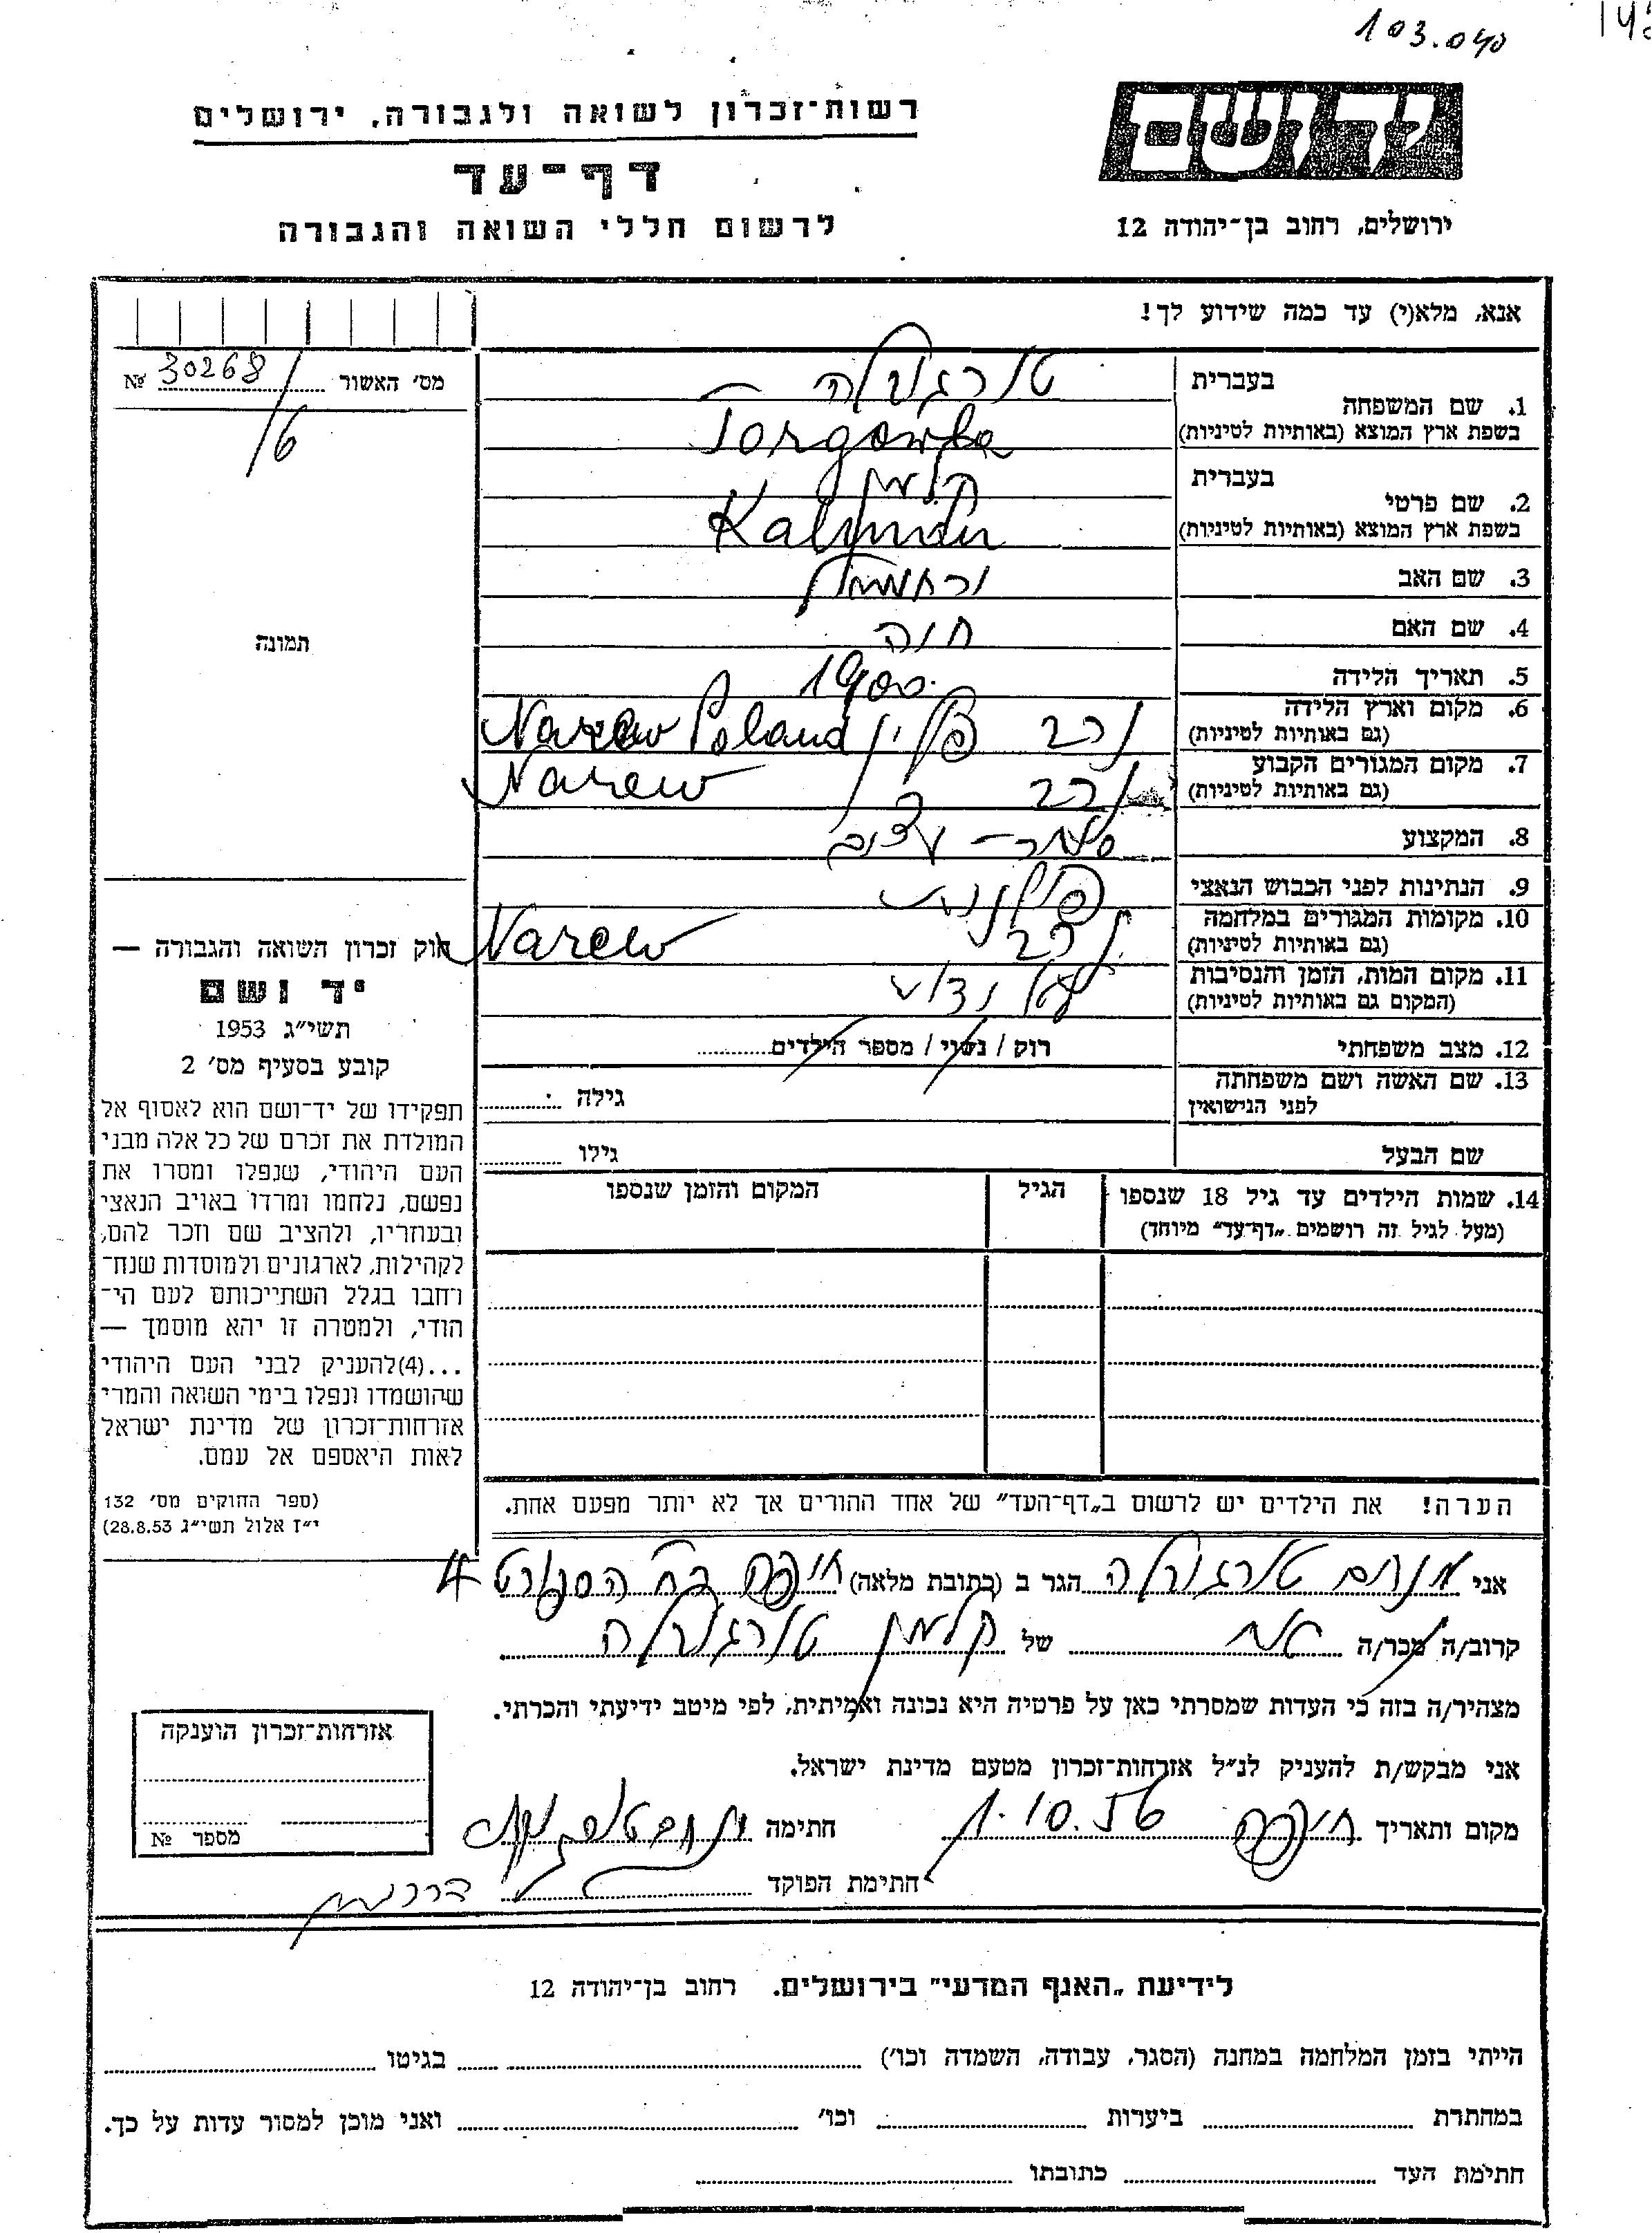 103.040
יד ושם
רשות־זכרון לשואה ולגבורה, ירושלים
דף־עד
לרשום חללי השואה והגבורה
ירושלים, רחוב בן־יהודה 12
אנא, מלא(י) עד כמה שידוע לך!
מס׳ האשור 30268 №
/6
תמונה
בעברית טורגובלה
1. שם המשפחה
בשפת ארץ המוצא (באותיות לטיניות)
בעברית קלמן
2. שם פרטי
בשפת ארץ המוצא (באותיות לטיניות) Kalman
3. שם האב
4. שם האם חוה
5. תאריך הלידה 1900
6. מקום וארץ הלידה
(גם באותיות לטיניות) נרב פולין Narew Poland
7. מקום המגורים הקבוע
(גם באותיות לטיניות) נרב Narew
8. המקצוע סוחר - עצים
9. הנתינות לפני הכבוש הנאצי פולנית
10. מקומות המגורים במלחמה
(גם באותיות לטיניות) נרב Narew
11. מקום המות, הזמן והנסיבות
(המקום גם באותיות לטיניות) לא ידוע
12. מצב משפחתי רוק / נשוי / מספר הילדים
13. שם האשה ושם משפחתה
לפני הנישואין גילה
שם הבעל גילו
14. שמות הילדים עד גיל 18 שנספו הגיל המקום והזמן שנספו
(מעל לגיל זה רושמים „דף־עד״ מיוחד)
הערה! את הילדים יש לרשום ב„דף־העד״ של אחד ההורים אך לא יותר מפעם אחת.
חוק זכרון השואה והגבורה —
יד ושם
תשי״ג 1953
קובע בסעיף מס׳ 2
תפקידו של יד־ושם הוא לאסוף אל
המולדת את זכרם של כל אלה מבני
העם היהודי, שנפלו ומסרו את
נפשם, נלחמו ומרדו באויב הנאצי
ובעוזריו, ולהציב שם וזכר להם,
לקהילות, לארגונים ולמוסדות שנח־
רחבו בגלל השתייכותם לעם הי־
הודי, ולמטרה זו יהא מוסמך —
...(4)להעניק לבני העם היהודי
שהושמדו ונפלו בימי השואה והמרי
אזרחות־זכרון של מדינת ישראל
לאות היאספם אל עמם.
(ספר החוקים מס׳ 132
י״ז אלול תשי״ג 28.8.53)
אני מנחם טורגובלה הגר ב (כתובת מלאה) חיפה רח הספורט 4
קרוב/ה מכר/ה אח של קלמן טורגובלה
מצהיר/ה בזה כי העדות שמסרתי כאן על פרטיה היא נכונה ואמיתית, לפי מיטב ידיעתי והכרתי.
אני מבקש/ת להעניק לנ״ל אזרחות־זכרון מטעם מדינת ישראל.
מקום ותאריך חיפה 1.10.56 חתימה
חתימת הפוקד
אזרחות־זכרון הוענקה
מספר №
לידיעת „האנף המדעי״ בירושלים. רחוב בן־יהודה 12
הייתי בזמן המלחמה במחנה (הסגר, עבודה, השמדה וכו׳) בגיטו
במחתרת ביערות וכו׳ ואני מוכן למסור עדות על כך.
חתימת העד כתובתו